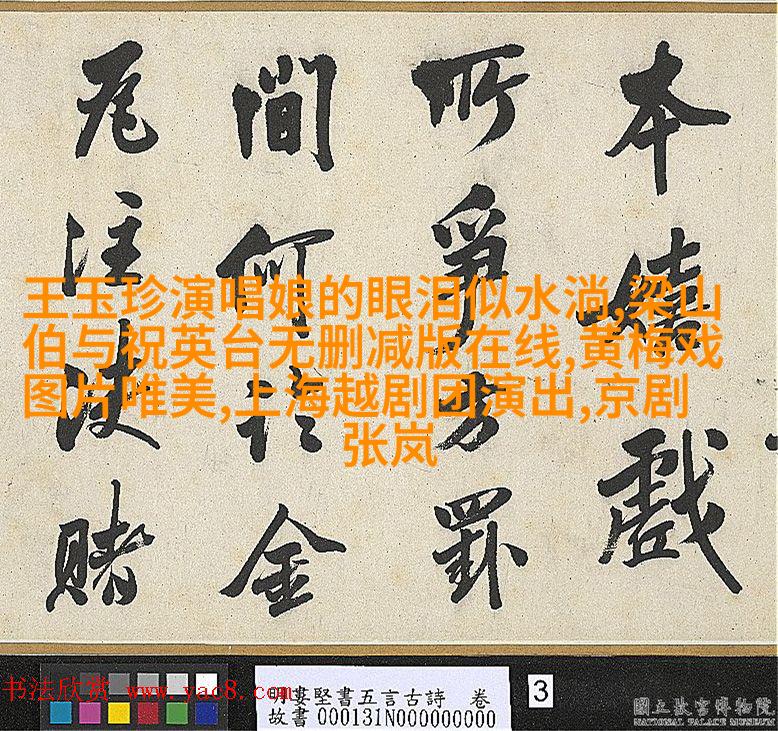 本戲
所爭方罫
間何金
瓦注賭
王玉珍演唱娘的眼泪似水淌,梁山
伯与祝英台无删减版在线,黄梅戏
图片唯美,上海越剧团演出,京剧
张岚
书法欣赏 www.yac8.com
明婁堅書五言古詩 卷
故書000131N000000000
3
國立故宮博物院
NATIONAL PALACE MUSEUM